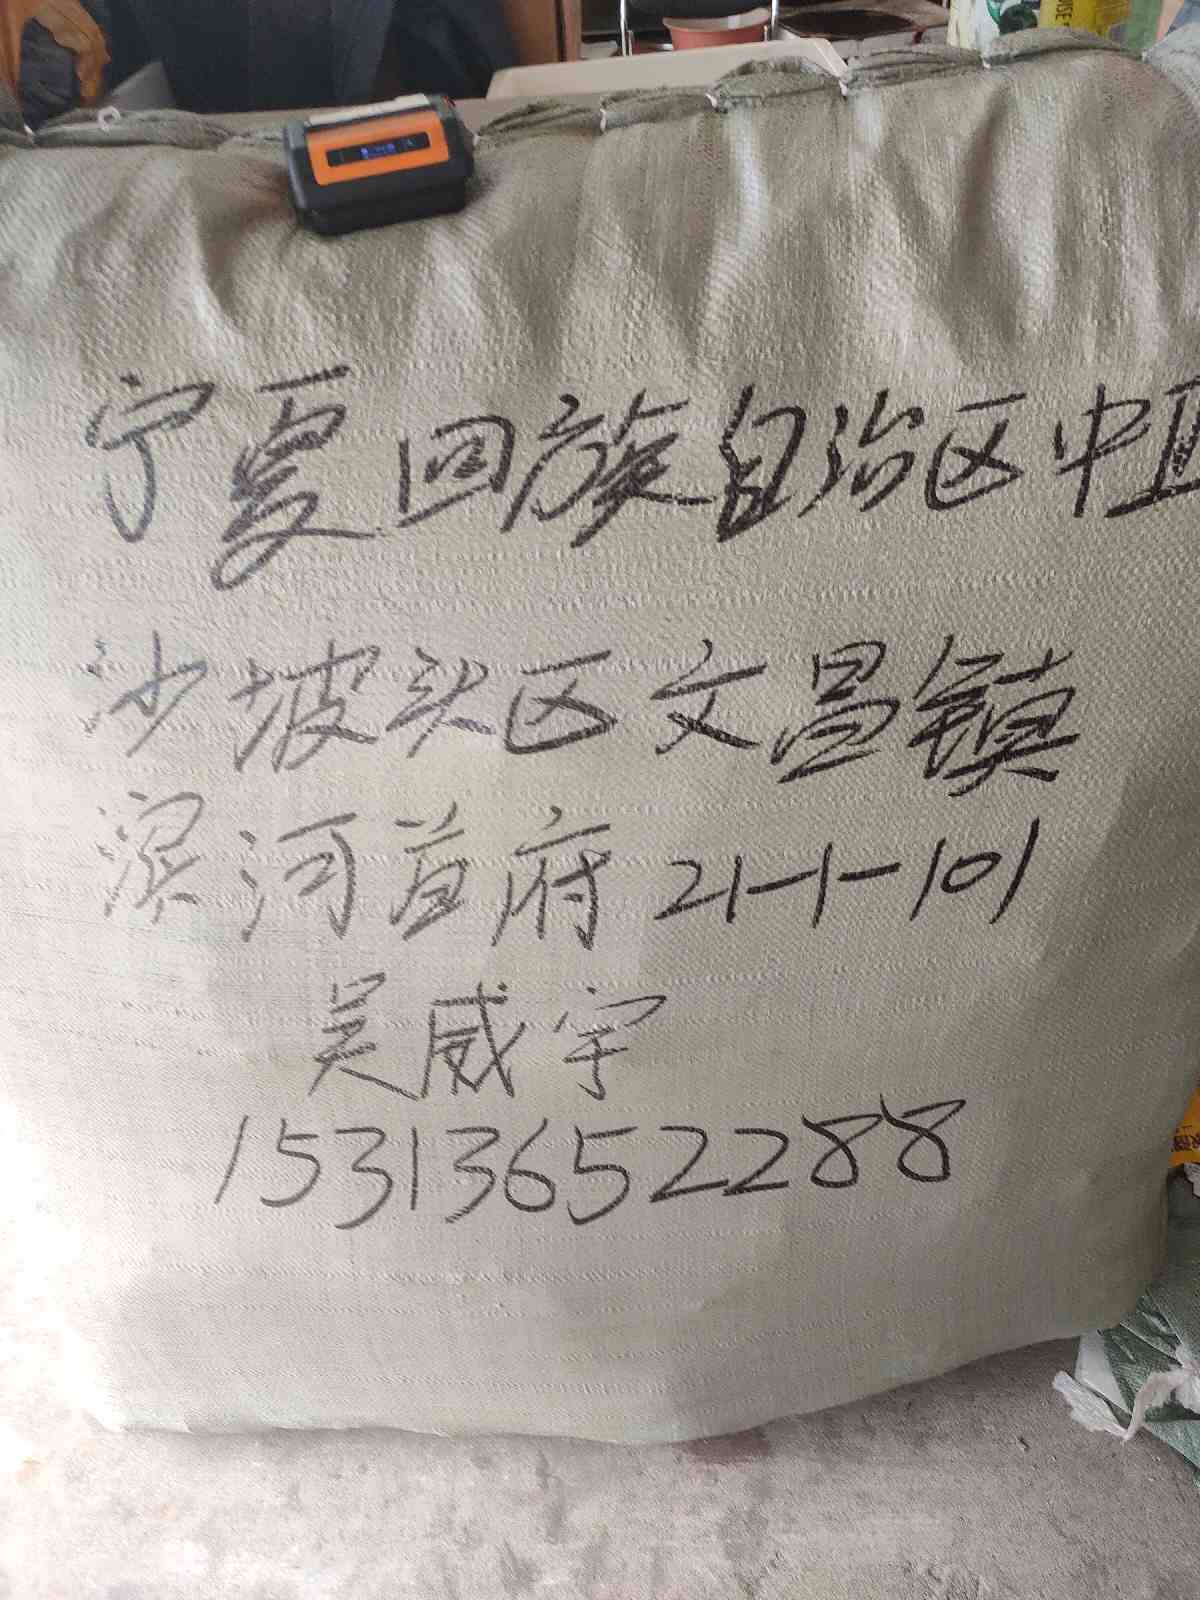 宁夏回族自治区中卫
沙坡头区文昌镇
滨河首府21-1-101
吴威宇
15313652288